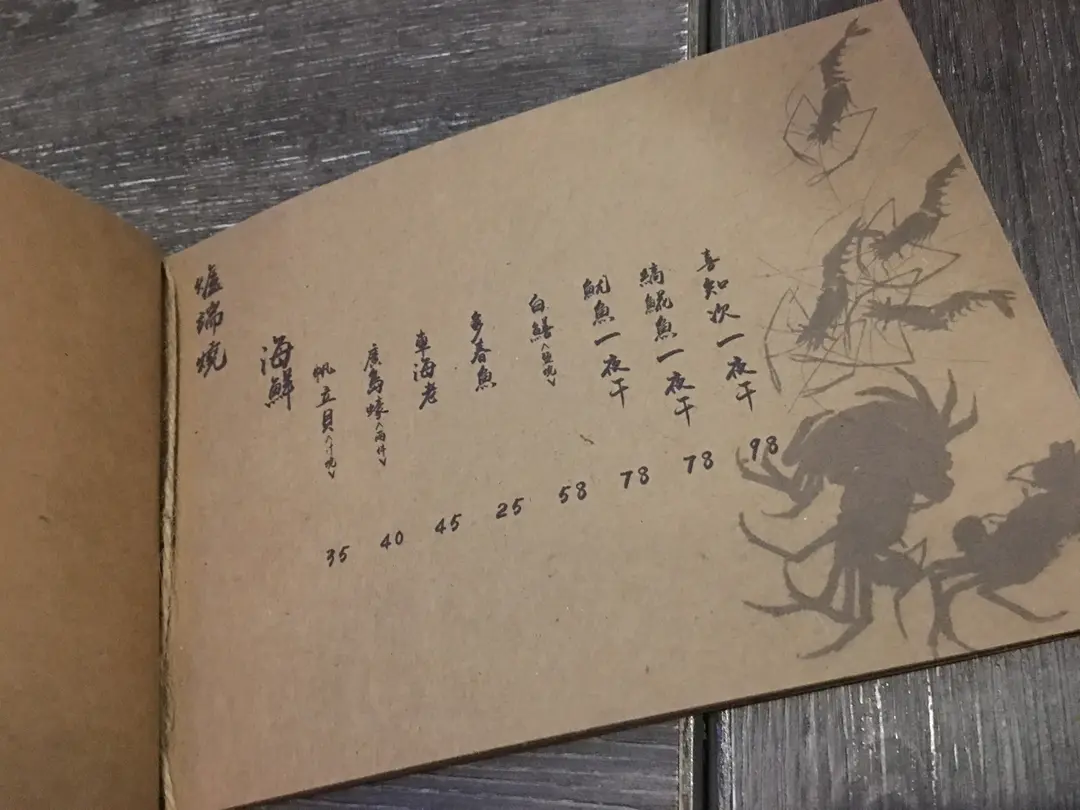 爐端燒
海鮮
帆立貝 35
廣島蠔〈兩件〉 40
車海老 45
多春魚 25
白鱔 58
魷魚一夜干 78
縞鯤魚一夜干 78
喜知次一夜干 98